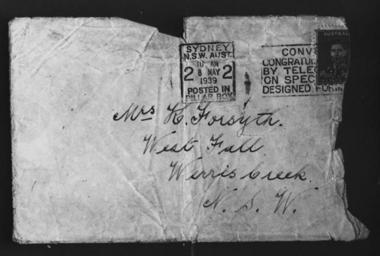 SYDNEY
N.S.W. AUST.
10 AM
2 8 MAY 2
1939
POSTED IN
PILLAR BOX
CONV
CONGRATUL
BY TELEG
ON SPEC
DESIGNED FOR
AUSTRALIA
Mrs H. Forsyth.
West Fall
Werris Creek.
N. S. W.